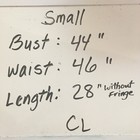 Small
Bust: 44"
Waist: 46"
Length: 28" without Fringe
CL